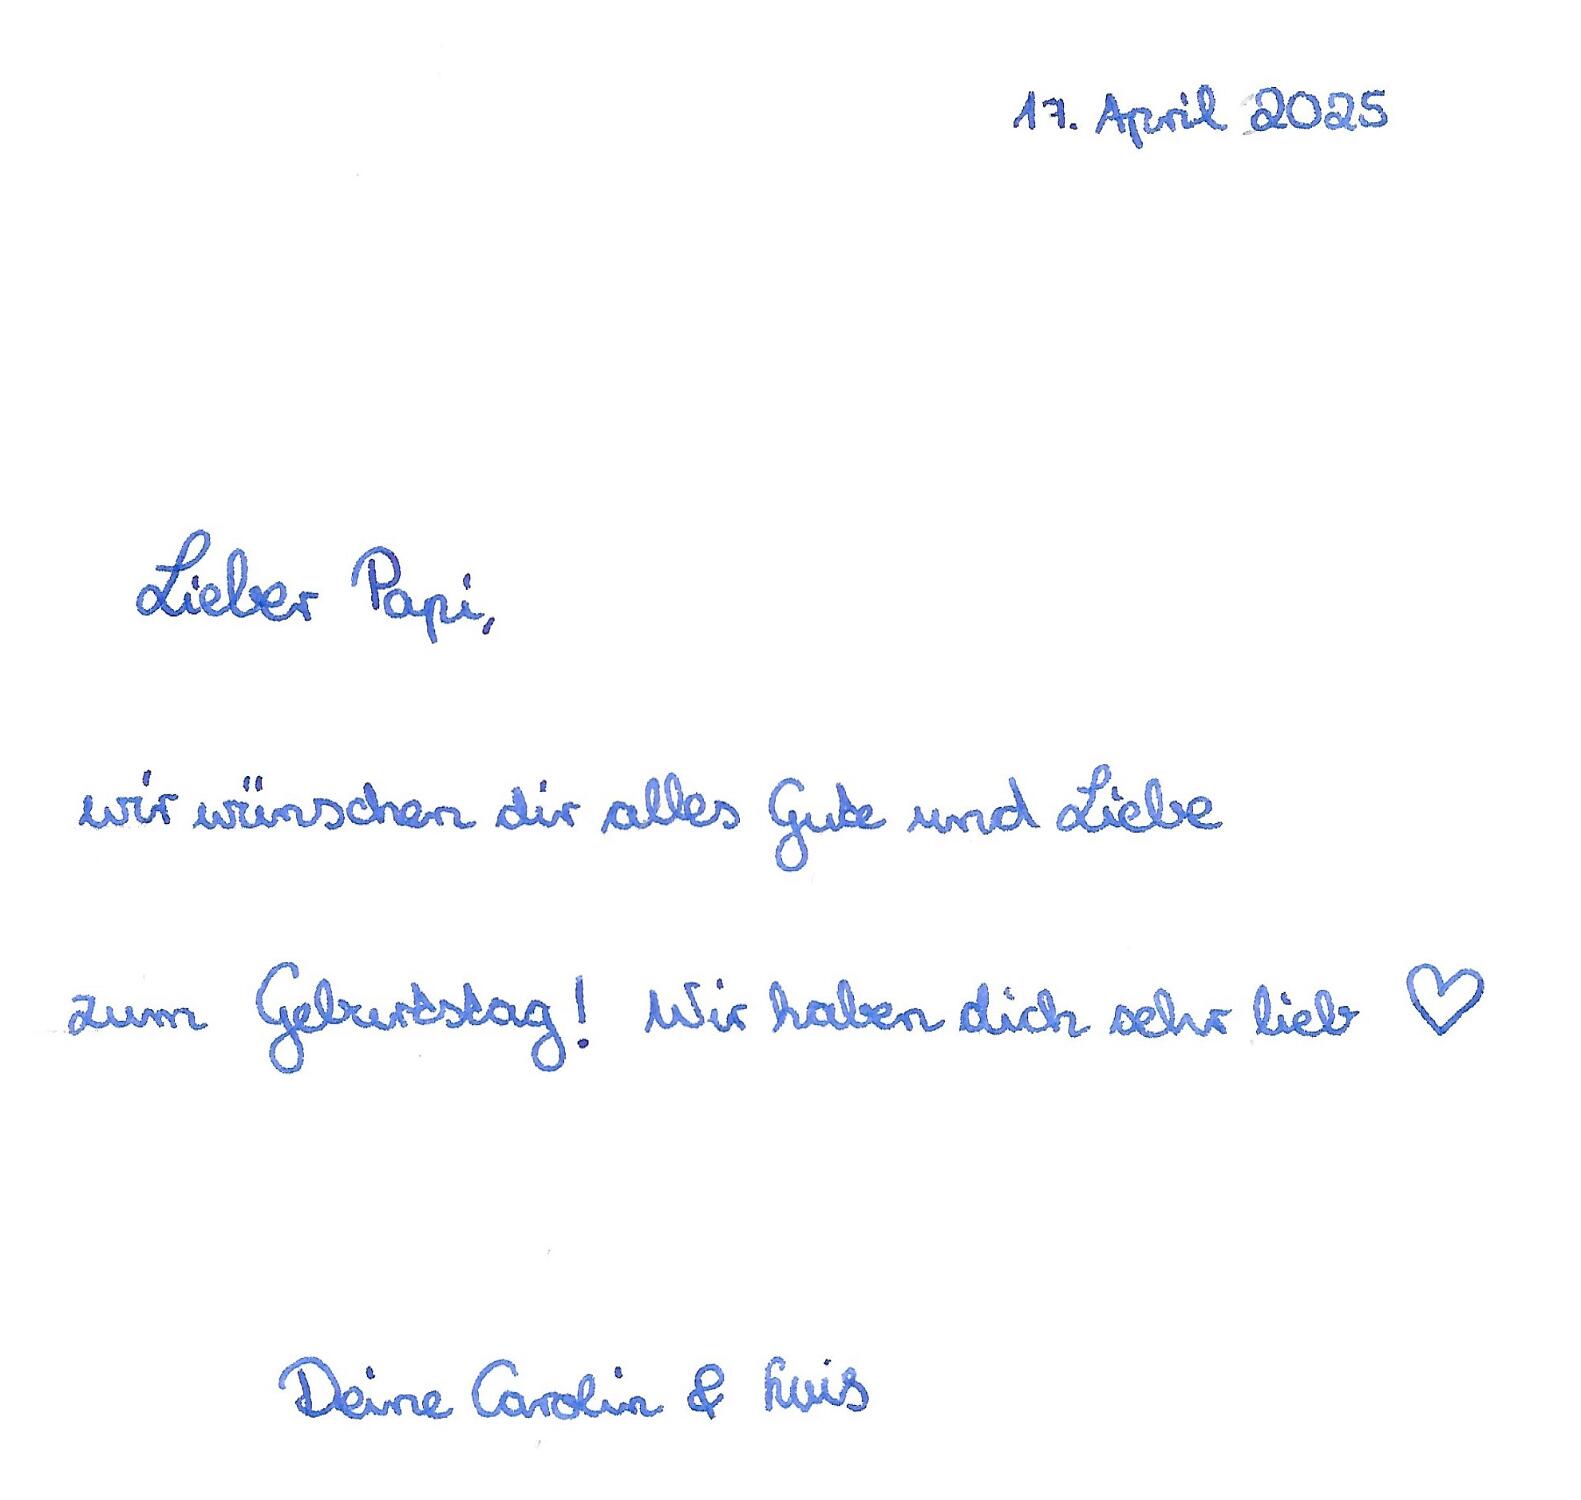 17. April 2025
Lieber Papi,
wir wünschen dir alles Gute und Liebe
zum Geburtstag! Wir haben dich sehr lieb ♡
Deine Carolin & Luis